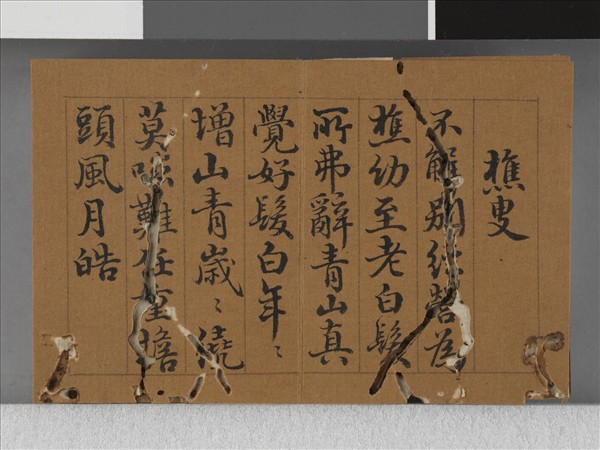 樵叟
不解別經營為
樵幼至老白髮
所弗辭青山真
覺好髮白年〻
增山青歲〻繞
莫難任重擔
頭風月皓